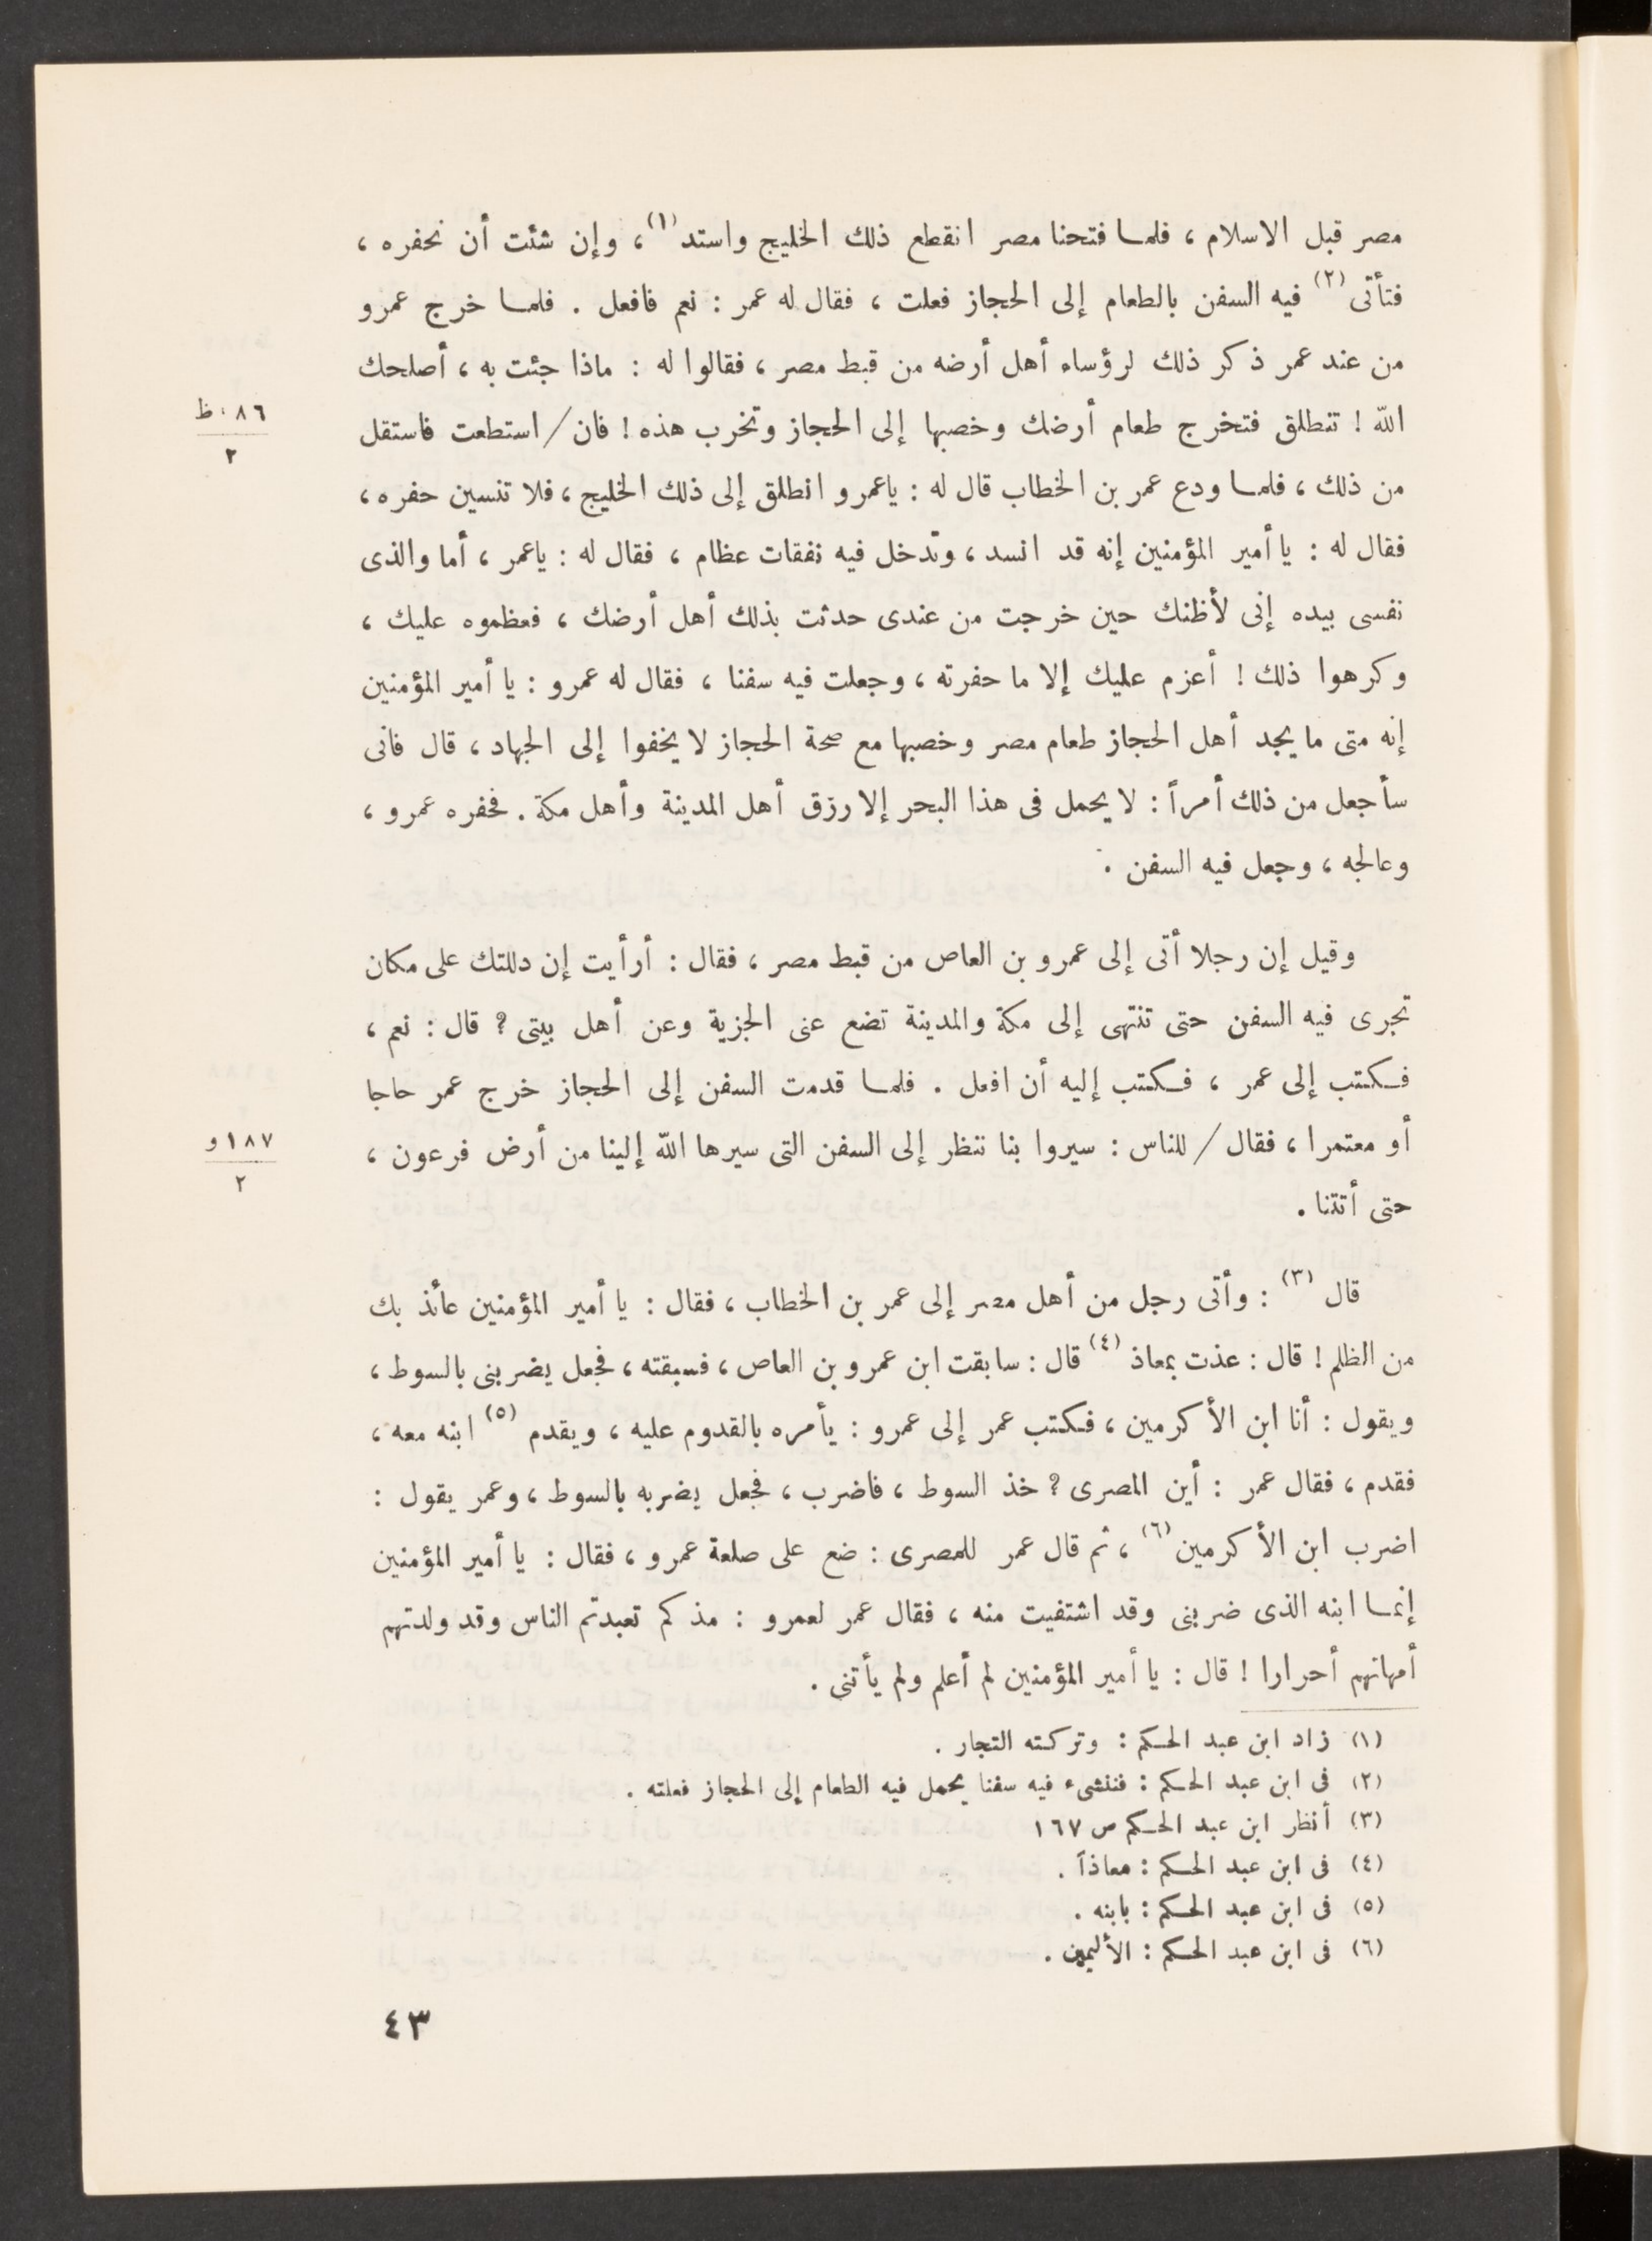 مصر قبل الاسلام ، فلما فتحنا مصر انقطع ذلك الخليج واستد (١) ، وإن شئت أن نحفره ،
فتأتى (٢) فيه السفن بالطعام إلى الحجاز فعلت ، فقال له عمر : نعم فافعل . فلما خرج عمرو
من عند عمر ذكر ذلك لرؤساء أهل أرضه من قبط مصر ، فقالوا له : ماذا جئت به ، أصلحك
الله ! تنطلق فتخرج طعام أرضك وخصبها إلى الحجاز وتخرب هذه ! فان / استطعت فاستقل
٨٦ ظ
٢
من ذلك ، فلما ودع عمر بن الخطاب قال له : ياعمرو انطلق إلى ذلك الخليج ، فلا تنسين حفره ،
فقال له : يا أمير المؤمنين إنه قد انسد ، وتدخل فيه نفقات عظام ، فقال له : ياعمر ، أما والذى
نفسى بيده إنى لأظنك حين خرجت من عندى حدثت بذلك أهل أرضك ، فعظموه عليك ،
وكرهوا ذلك ! أعزم عليك إلا ما حفرته ، وجعلت فيه سفنا ، فقال له عمرو : يا أمير المؤمنين
إنه متى ما يجد أهل الحجاز طعام مصر وخصبها مع صحة الحجاز لا يخفوا إلى الجهاد ، قال فانى
سأجعل من ذلك أمراً : لا يحمل فى هذا البحر إلا رزق أهل المدينة وأهل مكة . فحفره عمرو ،
وعالجه ، وجعل فيه السفن .
وقيل إن رجلا أتى إلى عمرو بن العاص من قبط مصر ، فقال : أرأيت إن دللتك على مكان
تجرى فيه السفن حتى تنتهى إلى مكة والمدينة تضع عنى الجزية وعن أهل بيتى ؟ قال : نعم ،
فكتب إلى عمر ، فكتب إليه أن افعل . فلما قدمت السفن إلى الحجاز خرج عمر حاجا
أو معتمرا ، فقال / للناس : سيروا بنا ننظر إلى السفن التى سيرها الله إلينا من أرض فرعون ،
١٨٧ و
٢
حتى أتتنا .
قال (٣) : وأتى رجل من أهل مصر إلى عمر بن الخطاب ، فقال : يا أمير المؤمنين عائذ بك
من الظلم ! قال : عذت بمعاذ (٤) قال : سابقت ابن عمرو بن العاص ، فسبقته ، فجعل يضربنى بالسوط ،
ويقول : أنا ابن الأكرمين ، فكتب عمر إلى عمرو : يأمره بالقدوم عليه ، ويقدم (٥) ابنه معه ،
فقدم ، فقال عمر : أين المصرى ؟ خذ السوط ، فاضرب ، فجعل يضربه بالسوط ، وعمر يقول :
اضرب ابن الأكرمين (٦) ، ثم قال عمر للمصرى : ضع على صلعة عمرو ، فقال : يا أمير المؤمنين
إنما ابنه الذى ضربنى وقد اشتفيت منه ، فقال عمر لعمرو : مذ كم تعبدتم الناس وقد ولدتهم
أمهاتهم أحرارا ! قال : يا أمير المؤمنين لم أعلم ولم يأتنى .
(١) زاد ابن عبد الحكم : وتركته التجار .
(٢) فى ابن عبد الحكم : فننشىء فيه سفنا يحمل فيه الطعام إلى الحجاز فعلته .
(٣) أنظر ابن عبد الحكم ص ١٦٧
(٤) فى ابن عبد الحكم : معاذاً .
(٥) فى ابن عبد الحكم : بابنه .
(٦) فى ابن عبد الحكم : الأليمين .
٤٣